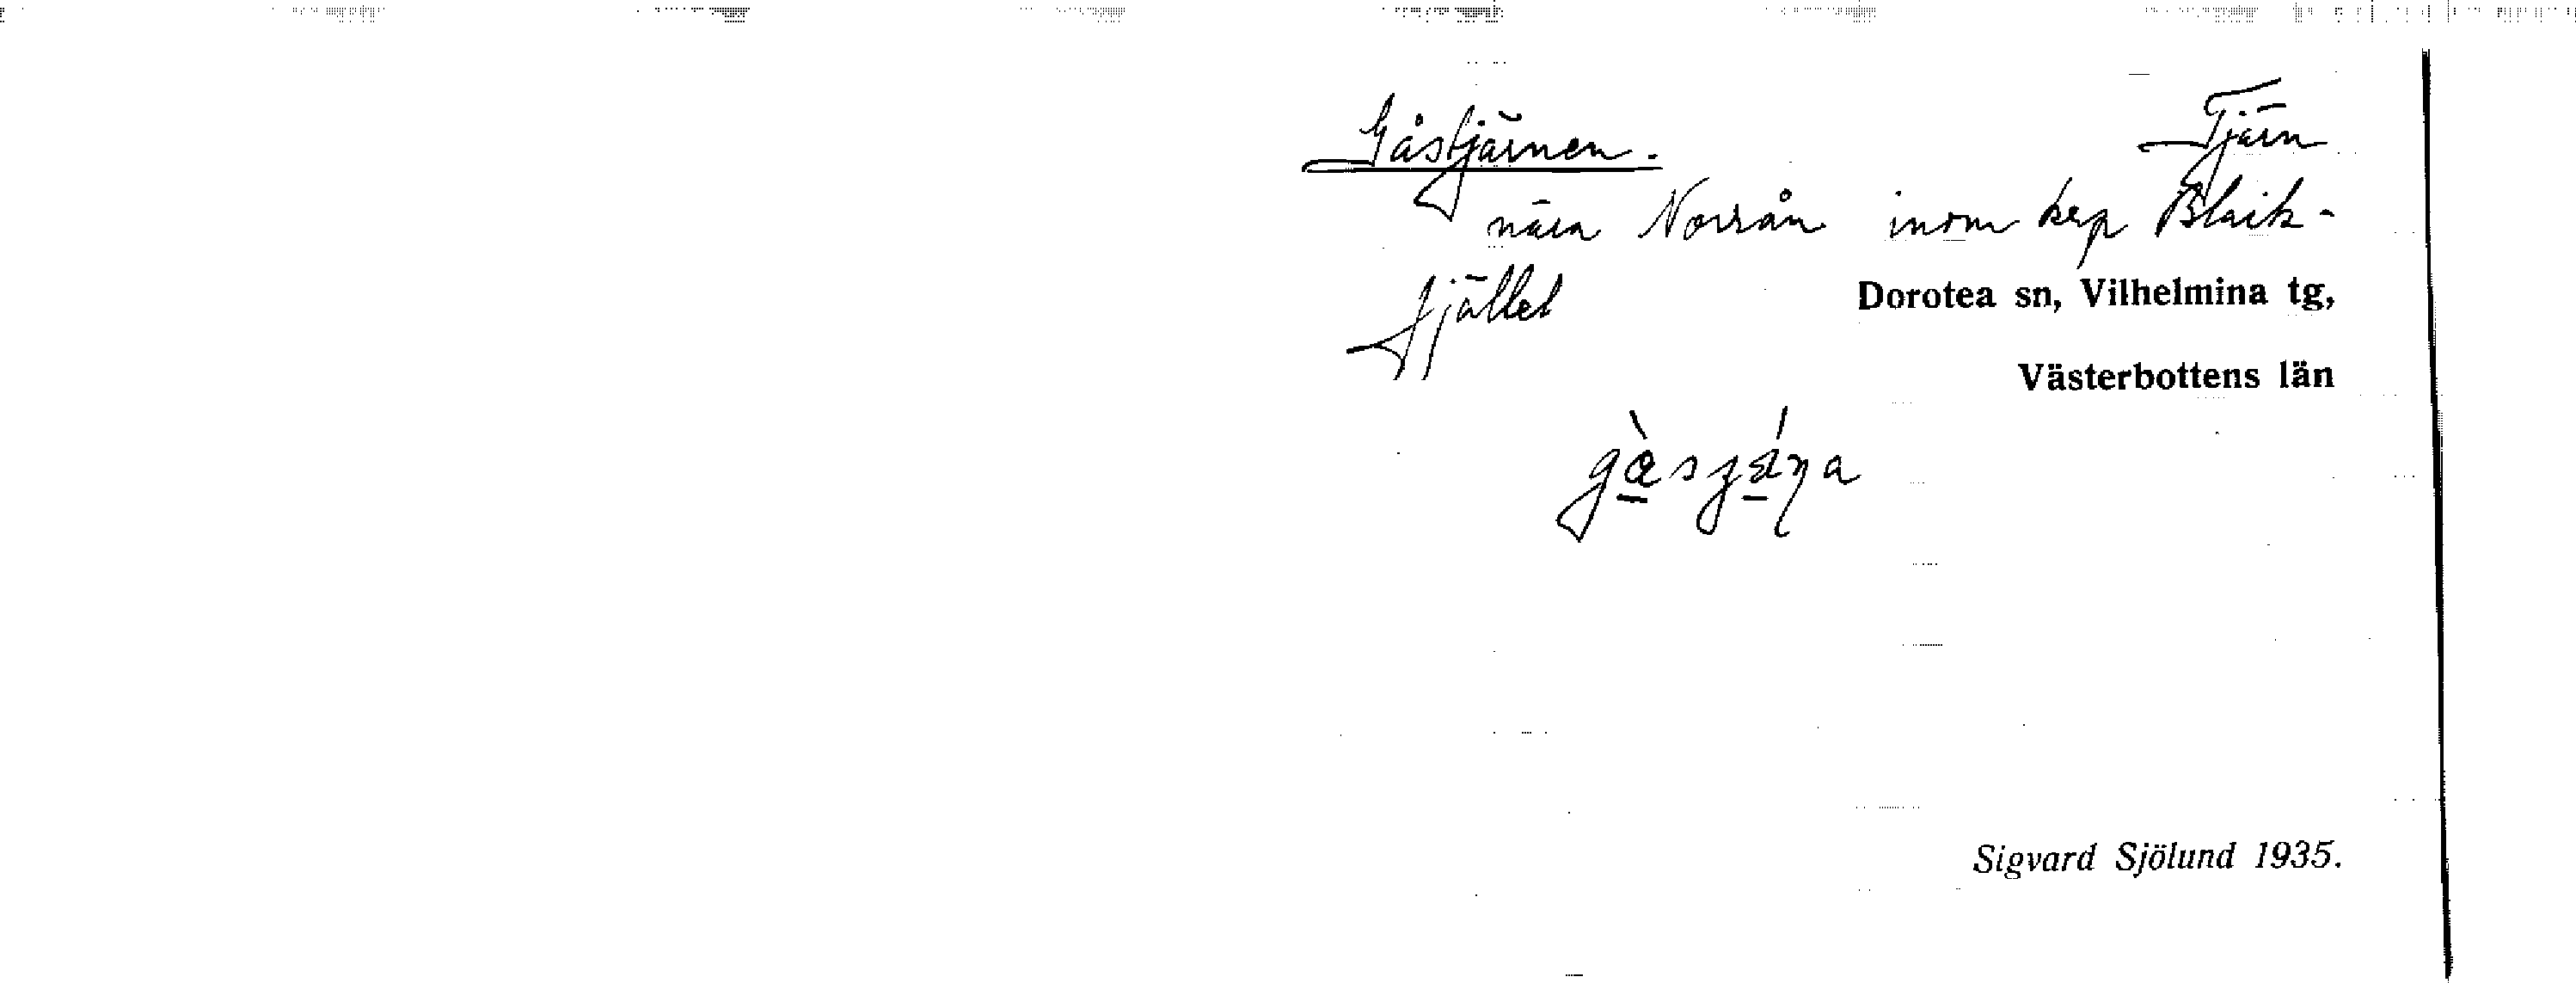 Gåstjärnen. Tjärn
nära Norrån inom krp Blaik-
fjället
Dorotea sn, Vilhelmina tg,
Västerbottens län
Sigvard Sjölund 1935.